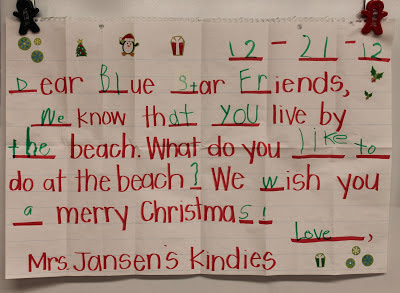 12-21-12
Dear Blue Star Friends,
We know that you live by
the beach. What do you like to
do at the beach? We wish you
a merry Christmas!
Love,
Mrs. Jansen's Kindies